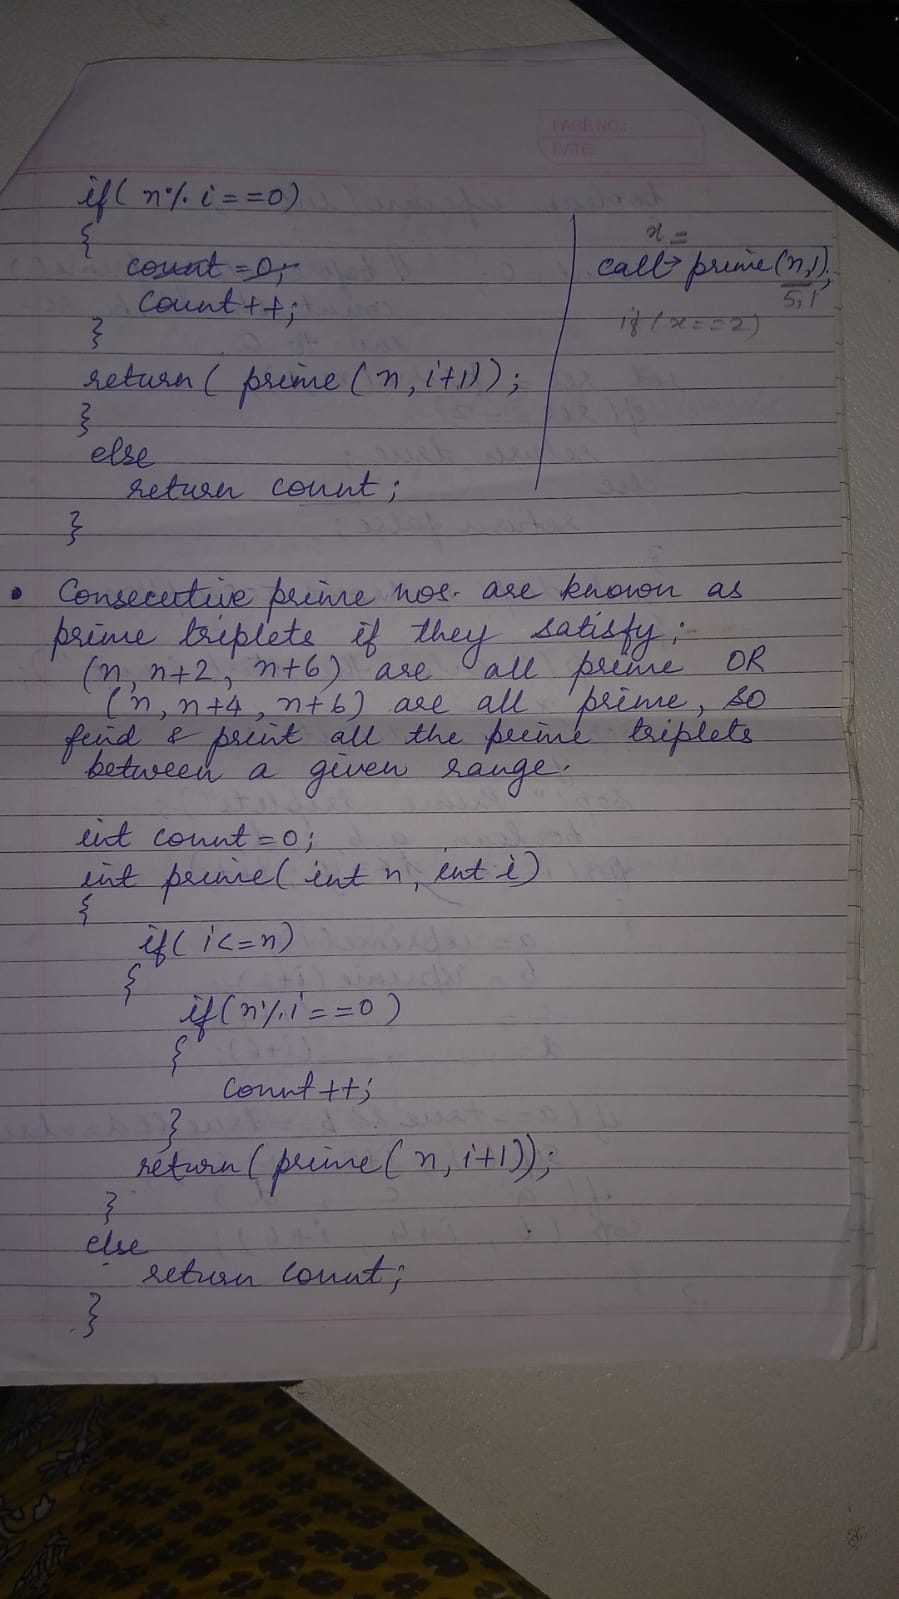 PAGE NO.:
DATE:
if( n% i==0)
{
count =0;
count++;
}
return( prime(n, i+1));
}
else
return count;
}
x =
call→ prime(n,1);
5,1
if(x==2)
• Consecutive prime nos. are known as
prime triplets if they satisfy;
(n, n+2, n+6) are all prime OR
(n, n+4, n+6) are all prime, so
find & print all the prime triplets
between a given range.
int count=0;
int prime( int n, int i)
{
if( i<=n)
{
if(n%i==0)
{
count++;
}
return( prime( n, i+1));
}
else
return count;
}